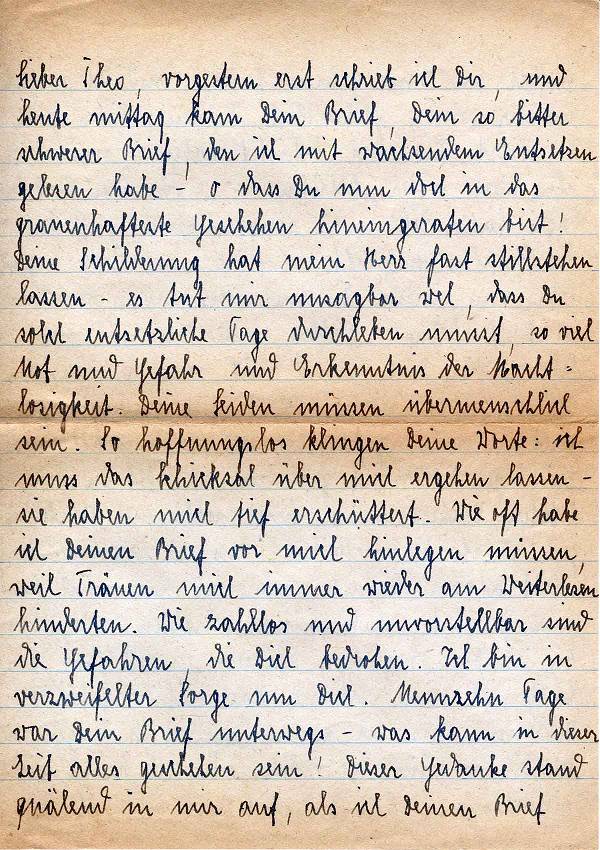 Lieber Theo, vorgestern erst schrieb ich Dir, und
heute mittag kam Dein Brief, Dein so bitter
schwerer Brief, den ich mit wachsendem Entsetzen
gelesen habe – o dass Du nun doch in das
grauenhafteste Geschehen hineingeraten bist!
Deine Schilderung hat mein Herz fast stillstehen
lassen – es tut mir unsagbar weh, dass Du
solch entsetzliche Tage durchleben musst, so viel
Not und Gefahr und Erkenntnis der Macht=
losigkeit. Deine Leiden müssen übermenschlich
sein. So hoffnungslos klingen Deine Worte: ich
muss das Schicksal über mich ergehen lassen –
sie haben mich tief erschüttert. Wie oft habe
ich Deinen Brief vor mich hinlegen müssen,
weil Tränen mich immer wieder am Weiterlesen
hinderten. Wie zahllos und unvorstellbar sind
die Gefahren, die Dich bedrohen. Ich bin in
verzweifelter Sorge um Dich. Neunzehn Tage
war Dein Brief unterwegs – was kann in dieser
Zeit alles geschehen sein! Dieser Gedanke stand
quälend in mir auf, als ich Deinen Brief